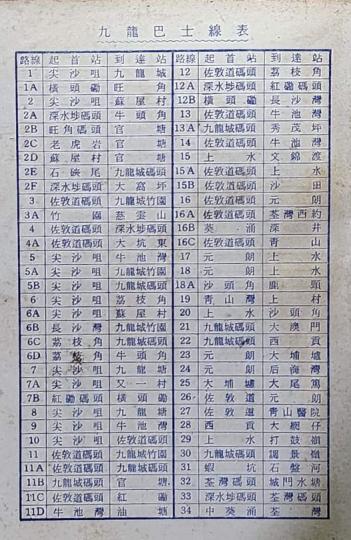 九龍巴士線表
路線 起首站 到達站 路線 起首站 到達站
1 尖沙咀 九龍城 12 佐敦道碼頭 荔枝角
1A 橫頭磡 旺角 12A 深水埗碼頭 紅磡碼頭
2 尖沙咀 蘇屋村 12B 橫頭磡 長沙灣
2A 深水埗碼頭 牛頭角 13 佐敦道碼頭 牛池灣
2B 旺角碼頭 官塘 13A 九龍城碼頭 秀茂坪
2C 老虎岩 官塘 14 佐敦道碼頭 牛池灣
2D 蘇屋村 官塘 15 上水 文錦渡
2E 石硤尾 九龍城碼頭 15A 佐敦道碼頭 上水
2F 深水埗碼頭 大窩坪 15B 佐敦道碼頭 沙田
3 佐敦道碼頭 九龍城竹園 16 佐敦道碼頭 元朗
3A 竹園 慈雲山 16A 佐敦道碼頭 荃灣西約
4 佐敦道碼頭 深水埗碼頭 16B 葵涌 深井
4A 佐敦道碼頭 大坑東 16C 佐敦道碼頭 青山
5 尖沙咀 牛池灣 17 元朗 上水
5A 尖沙咀 九龍城碼頭 18 元朗 上水
5B 尖沙咀 九龍城碼頭 18A 沙頭角 鹿頸
6 尖沙咀 荔枝角 19 青山灣 上村
6A 尖沙咀 蘇屋村 20 上水 沙頭角
6B 長沙灣 九龍城竹園 21 九龍城碼頭 大澳門
6C 荔枝角 九龍城碼頭 22 九龍城碼頭 西貢
6D 荔枝角 牛頭角 23 元朗 大埔墟
7 尖沙咀 九龍塘 24 元朗 后海灣
7A 尖沙咀 又一村 25 大埔墟 大尾篤
7B 紅磡碼頭 橫頭磡 26 佐敦道 元朗
8 尖沙咀 九龍塘 27 佐敦道 青山醫院
9 尖沙咀 牛池灣 28 西貢 大網仔
10 尖沙咀 佐敦道碼頭 29 上水 打鼓嶺
11 佐敦道碼頭 九龍城竹園 30 九龍城碼頭 調景嶺
11A 佐敦道碼頭 九龍城碼頭 31 蝦坑 石盤河
11B 九龍城碼頭 官塘 32 荃灣碼頭 城門水塘
11C 佐敦道碼頭 紅磡 33 深水埗碼頭 荃灣碼頭
11D 牛池灣 油塘 34 中葵涌 荃灣